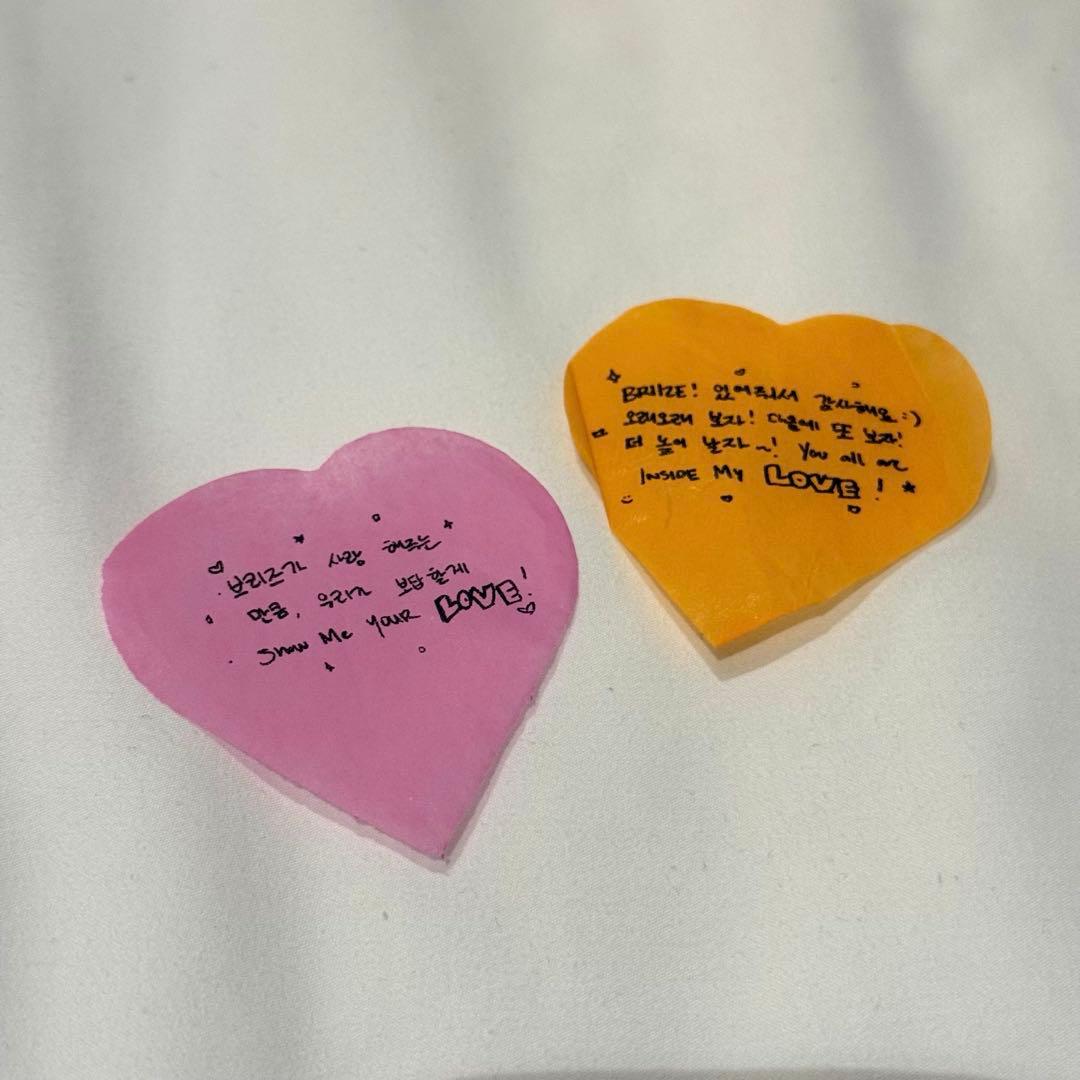 브리즈가 사랑 해주는
만큼, 우리가 보답할게
Show Me YOUR LOVE!
BRIIZE! 있어줘서 감사해요 :)
오래오래 보자! 다음에 또 보자!
더 높이 날자~! You all are
INSIDE MY LOVE!